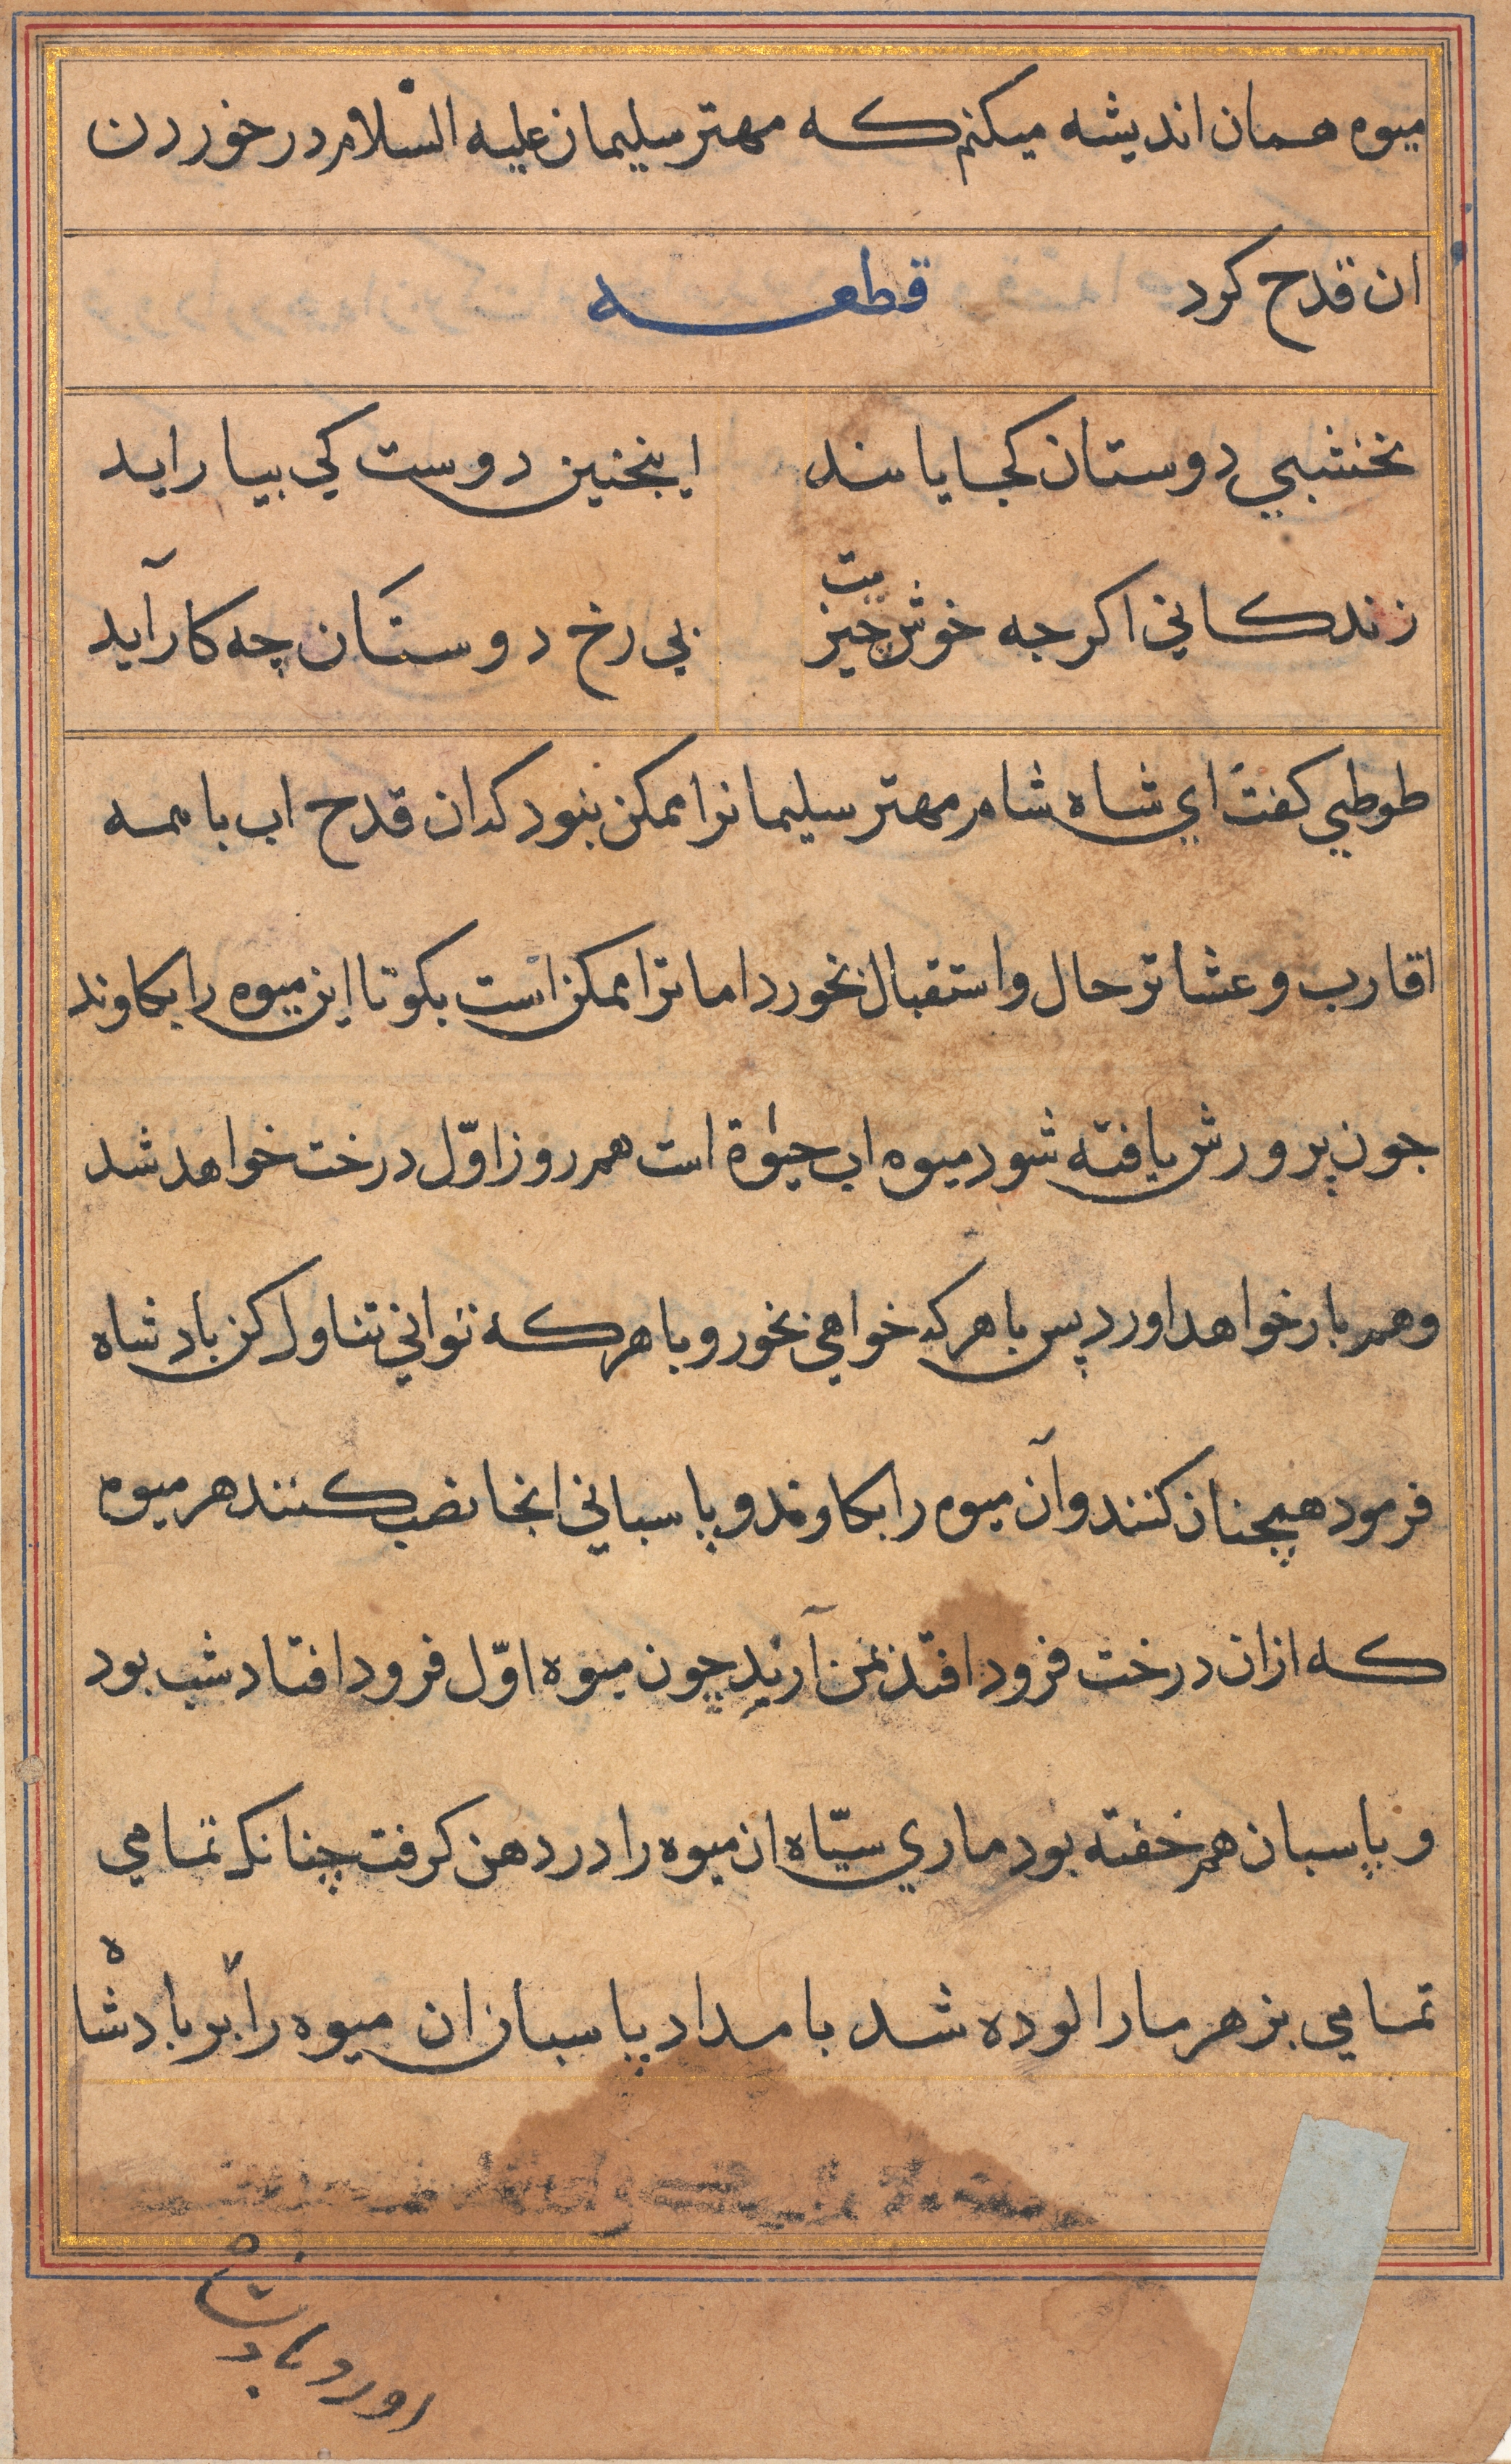 میوه همان اندیشه میکنم که مهتر سلیمان علیه السلام در خوردن
ان قدح کرد قطعه
نخشبي دوستان کجا یابند اینچنین دوست کي بیاراید
زندکاني اکرجه خوش جیزیت بي رخ دوستان چه کار آید
طوطي کفت اي شاه شام مهتر سلیمانرا ممکن نبود که ان قدح اب با همه
اقارب و عشاتر حال و استقبال نخورد اما ترا ممکن است بکو تا این میوه را بکاوند
جون پرورش یافته شود میوه اب حیوة است هم روز اوّل درخت خواهد شد
و هم بار خواهد اورد پس با هر که خواهي بخور و با هر که تواني تناول کن بادشاه
فرمود همچنان کنند و آن میوه را بکاوند و پاسباني انجا نصب کنند هر میوه
که ازان درخت فرود افتد بمن آرند چون میوه اوّل فرود افتاد شب بود
و پاسبان هم خفته بود ماري سیّاه ان میوه را در دهن کرفت چنانکه تمامي
تمامي بزهر مار الوده شد بامداد پاسبان ان میوه را بر بادشاه
اورد بادشاه